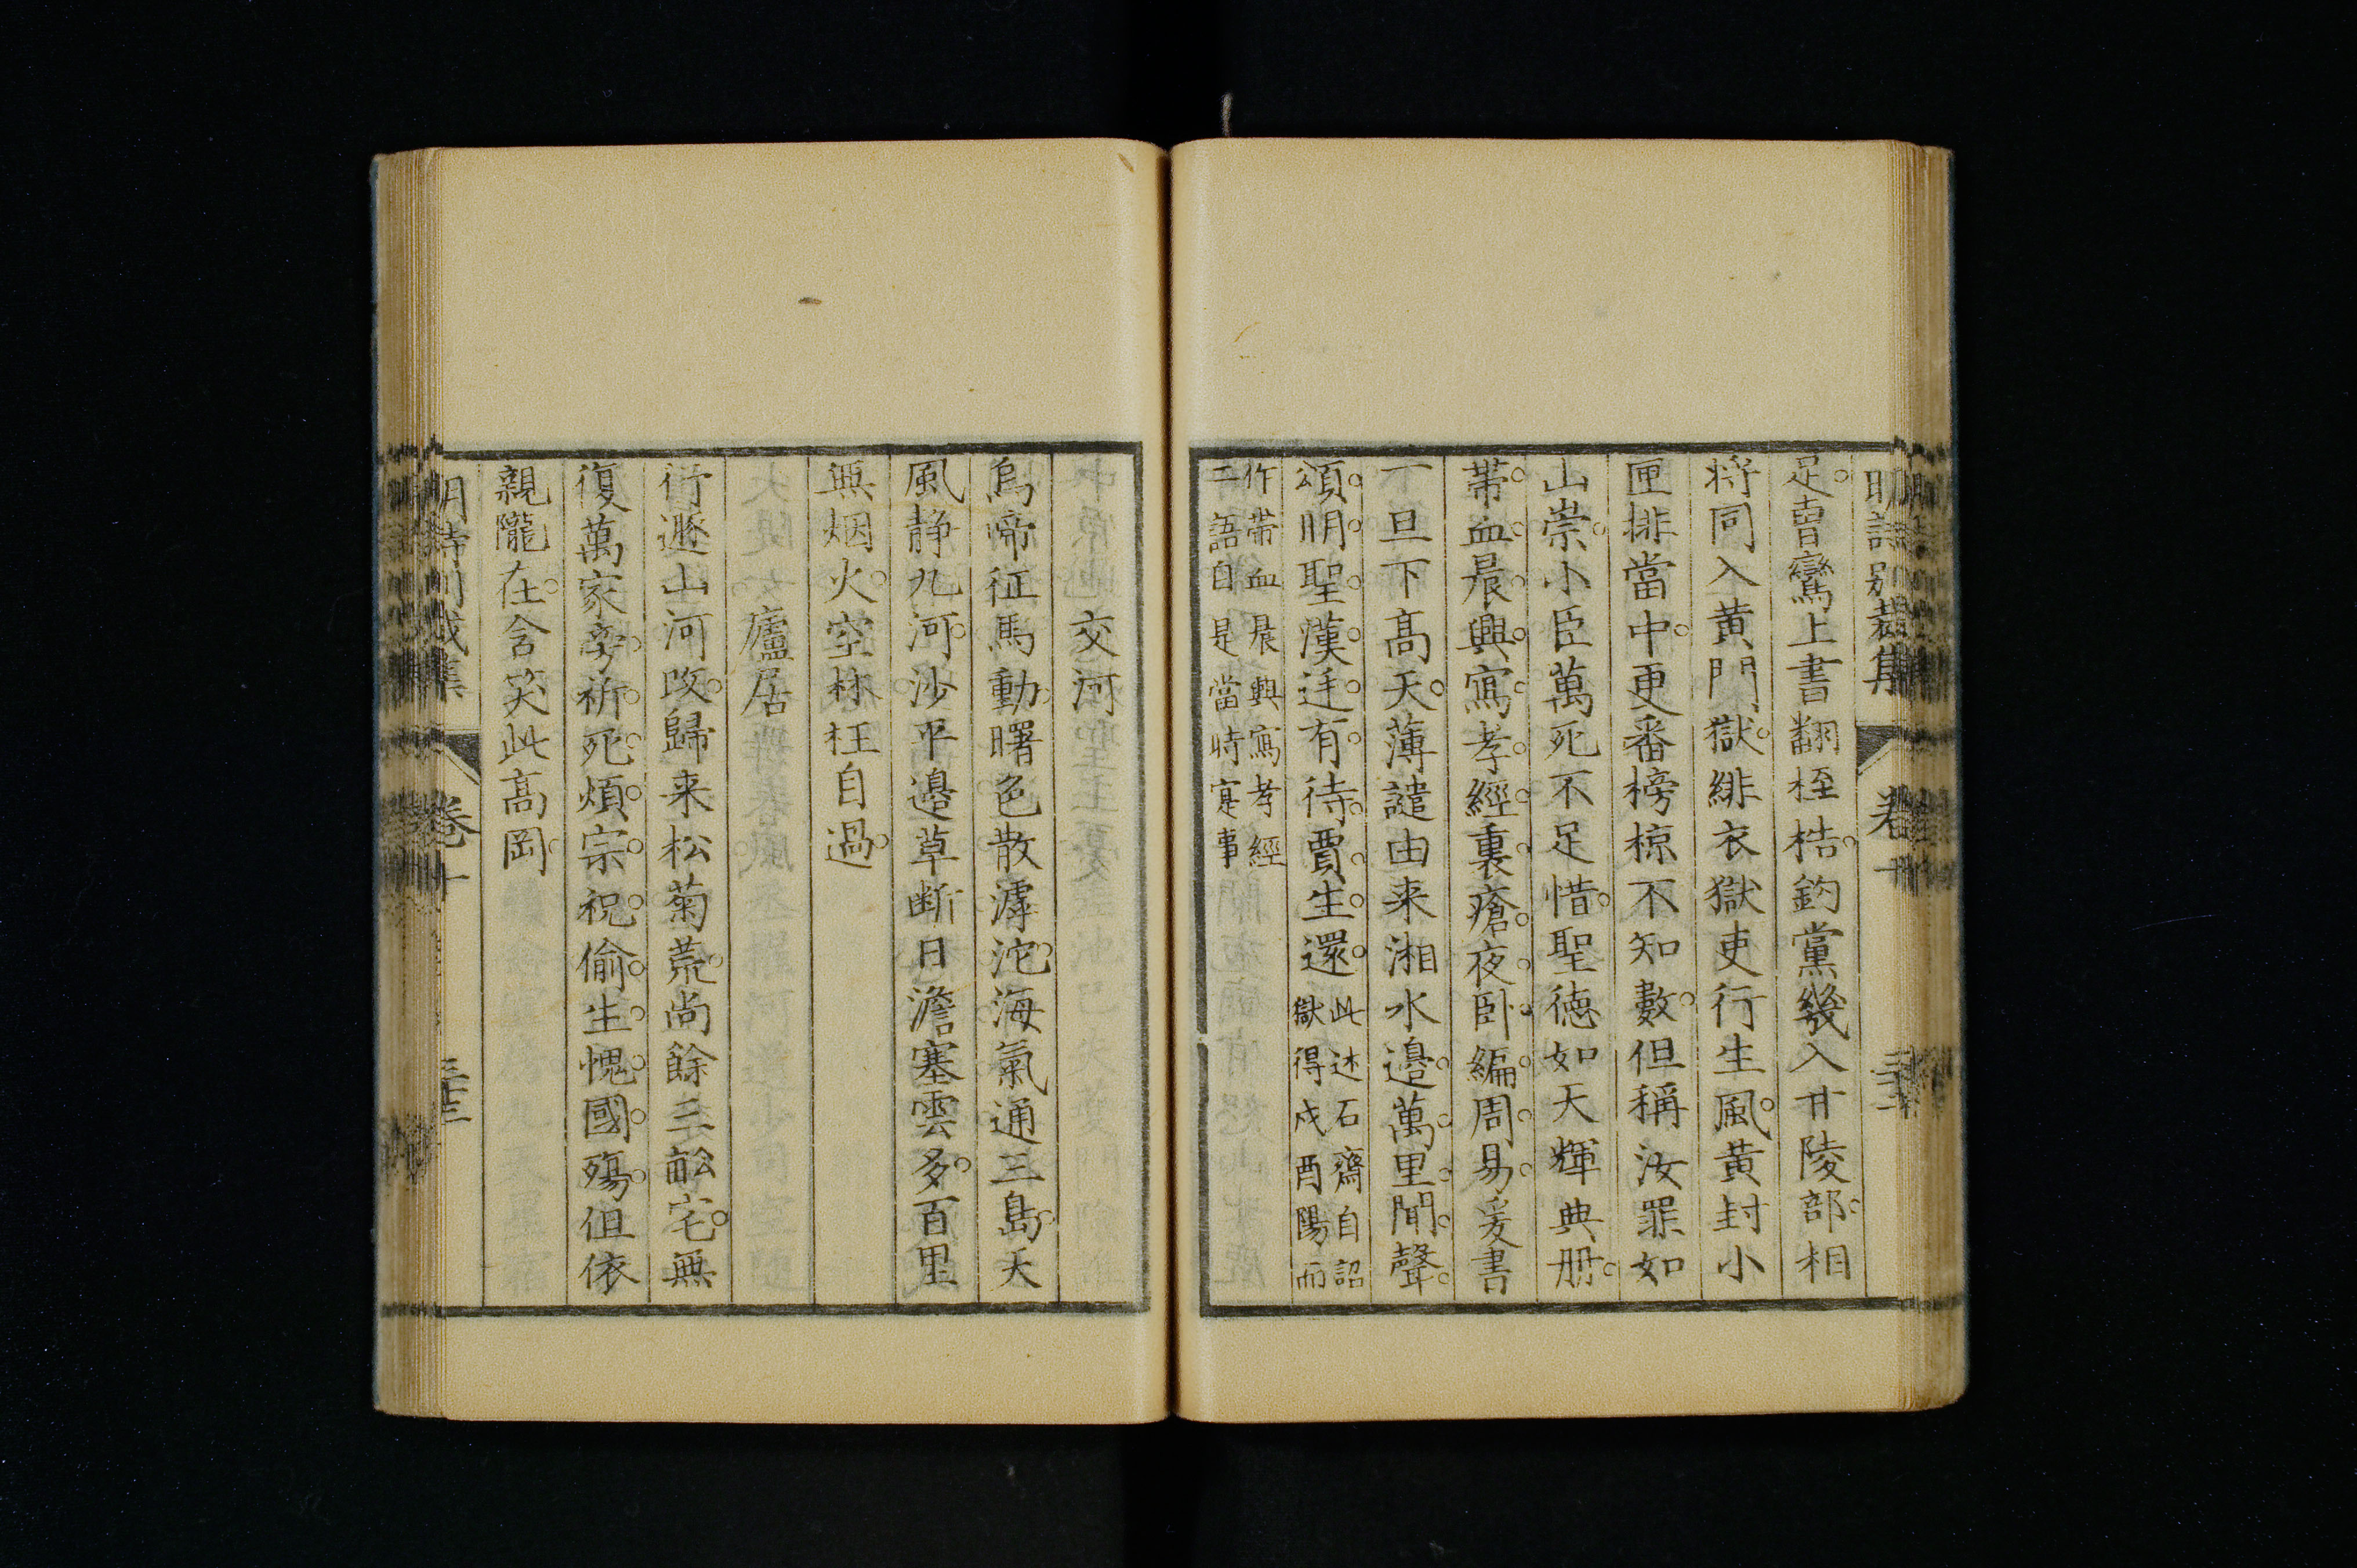 明詩別裁集 卷十
足賣鸞上書翻桎梏鈎黨幾入甘陵部相
將同入黄門獄緋衣獄吏行生風黄封小
匣排當中更番榜掠不知數但稱汝罪如
山崇小臣萬死不足惜聖德如天輝典册
帶血晨興寫孝經裏瘡夜卧編周易爰書
一旦下高天薄譴由来湘水邊萬里聞聲
頌明聖漢廷有待賈生還此述石齋自詔
獄得戍酉陽而
作帶血晨興寫孝經
二語自是當時寔事
交河
烏啼征馬動曙色散滹沱海氣通三島天
風静九河沙平邊草断日澹塞雲多百里
無烟火空林枉自過
廬居
行遯山河改歸来松菊荒尚餘三畝宅無
復萬家旁祈死煩宗祝偷生愧國殤但依
親隴在含笑此高岡
卷十